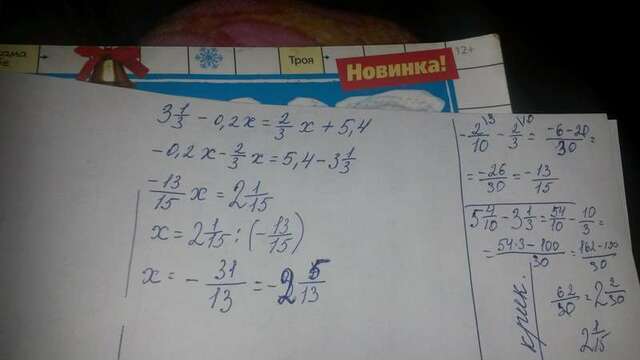 Троя
Новинка!
12+
3 1/3 - 0,2x = 2/3 x + 5,4
-0,2x - 2/3 x = 5,4 - 3 1/3
-13/15 x = 2 1/15
x = 2 1/15 : (-13/15)
x = - 31/13 = -2 5/13
- 2/10 \3 - 2/3 \10 = -6-20/30 =
= -26/30 = -13/15
5 4/10 - 3 1/3 = 54/10 - 10/3 =
= 54·3-100/30 = 162-100/30
62/30 = 2 2/30
2 1/15